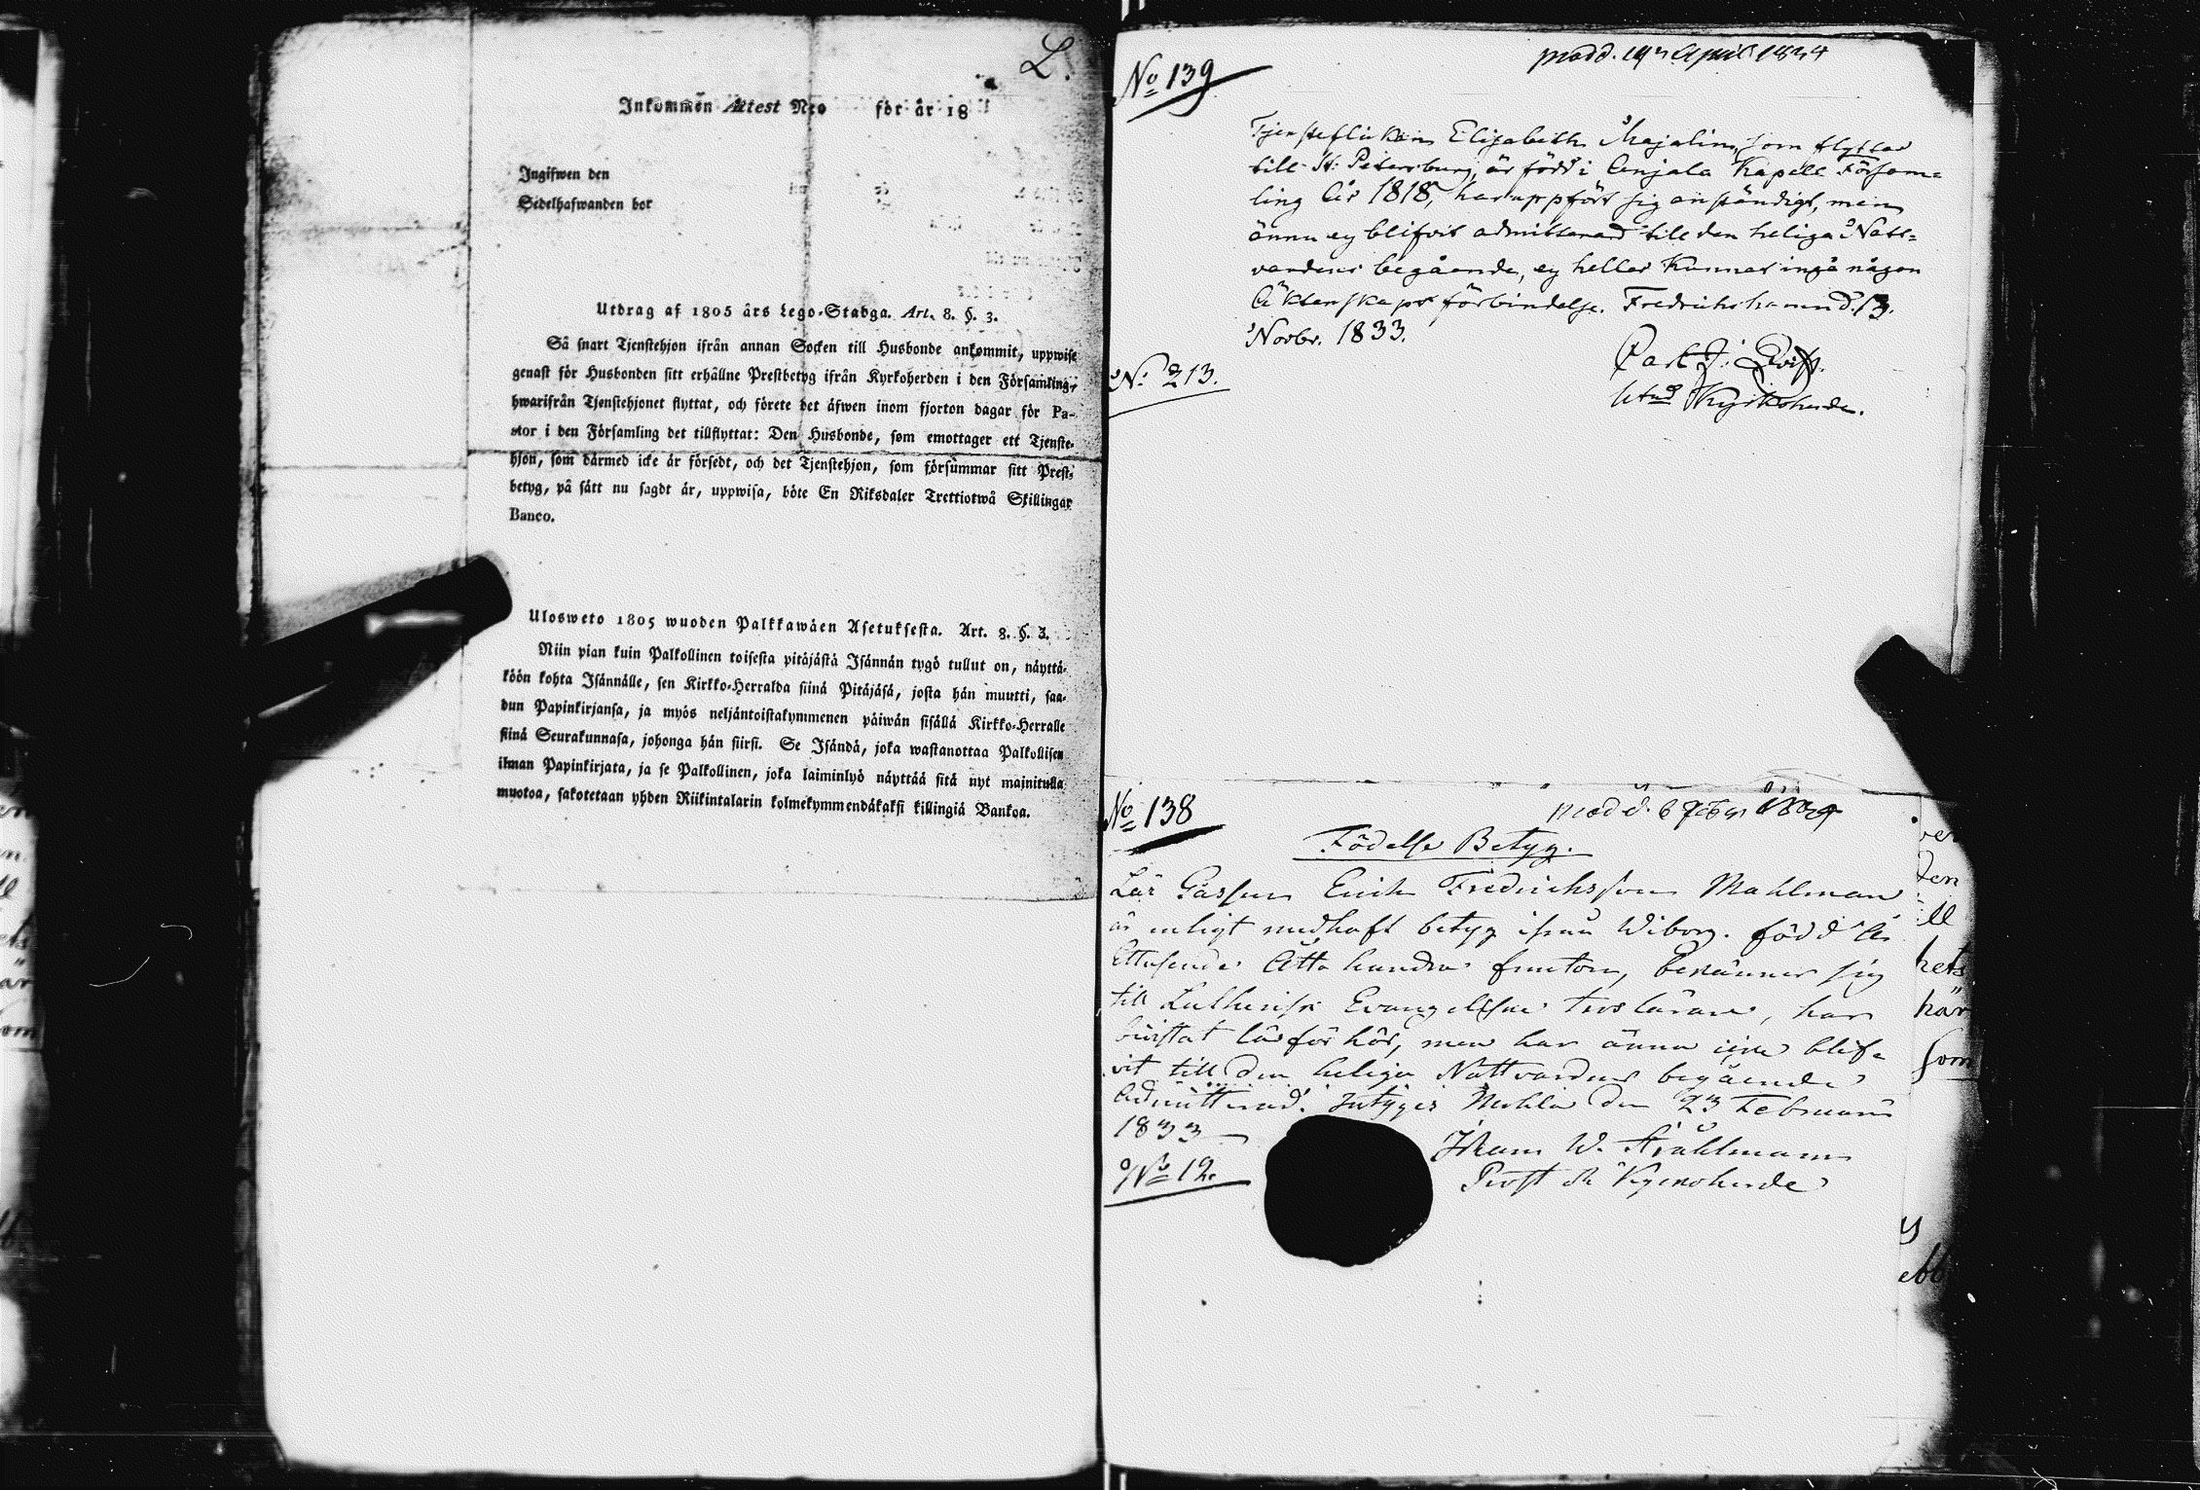 L.
Inkommen Attest Nro för år 18
Ingifwen den
Sedelhafwanden bor
Utdrag af 1805 års Lego-Stadga. Art. 8. §. 3.
Så snart Tjenstehjon ifrån annan Socken till Husbonde ankommit, uppwise
genast för Husbonden sitt erhållne Prestbetyg ifrån Kyrkoherden i den Församling,
hwarifrån Tjenstehjonet flyttat, och förete det äfwen inom fjorton dagar för Pa-
stor i den Församling det tillflyttat: Den Husbonde, som emottager ett Tjenste-
hjon, som därmed icke är försedt, och det Tjenstehjon, som försummar sitt Prest-
betyg, på sätt nu sagdt är, uppwisa, böte En Riksdaler Trettiotwå Skillingar
Banco.
Ulosweto 1805 wuoden Palkkawäen Asetuksesta. Art. 8. §. 3.
Niin pian kuin Palkollinen toisesta pitäjästä Isännän tygö tullut on, näyttä-
köön kohta Isännälle, sen Kirkko-Herralda siinä Pitäjäsä, josta hän muutti, saa-
dun Papinkirjansa, ja myös neljäntoistakymmenen päiwän sisällä Kirkko-Herralle
siinä Seurakunnasa, johonga hän siirsi. Se Isändä, joka wastanottaa Palkollisen
ilman Papinkirjata, ja se Palkollinen, joka laiminlyö näyttää sitä nyt mainitulla
muotoa, sakotetaan yhden Riikintalarin kolmekymmendäkaksi killingiä Bankoa.
No 139
prodd. 19 April 1834
Tjensteflickan Elisabeth Majalin, som flyttar
till St. Petersburg, är född i Anjala Kapell Försam=
ling År 1818, har uppfört sig anständigt, men
ännu ey blifvit admitterad till den heliga Natt=
vardens begående, ey heller kunnat ingå någon
Äktenskaps förbindelse. Fredrichshamn d. 13.
Novbr. 1833.
No 213.
Kyrkoherde.
No 138
prodd. 6
Födelse Betyg.
Lär Gåssen Erich Fredrichsson Mahlman
är enligt medhaft betyg ifrån Wiborg. född År
Ettusende Åtta hundra femton, bekänner sig
till Lutherisk Evangeliska troslärare, har
bivistat läsförhör, men har ännu icke blif=
vit till den heliga Nattvardens begående
Admitterad. Intygas Mohla den 23 Februarii
1833
No 12.
Johan W. Stråhlman
Prost och Kyrkoherde